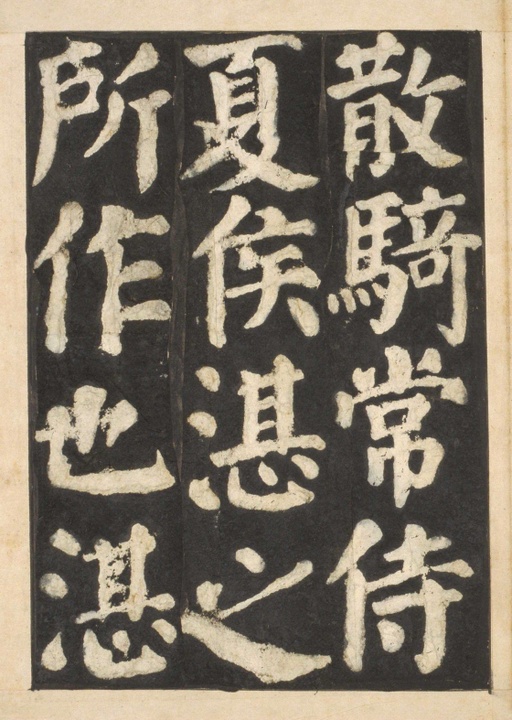 散騎常侍
夏侯湛之
所作也湛